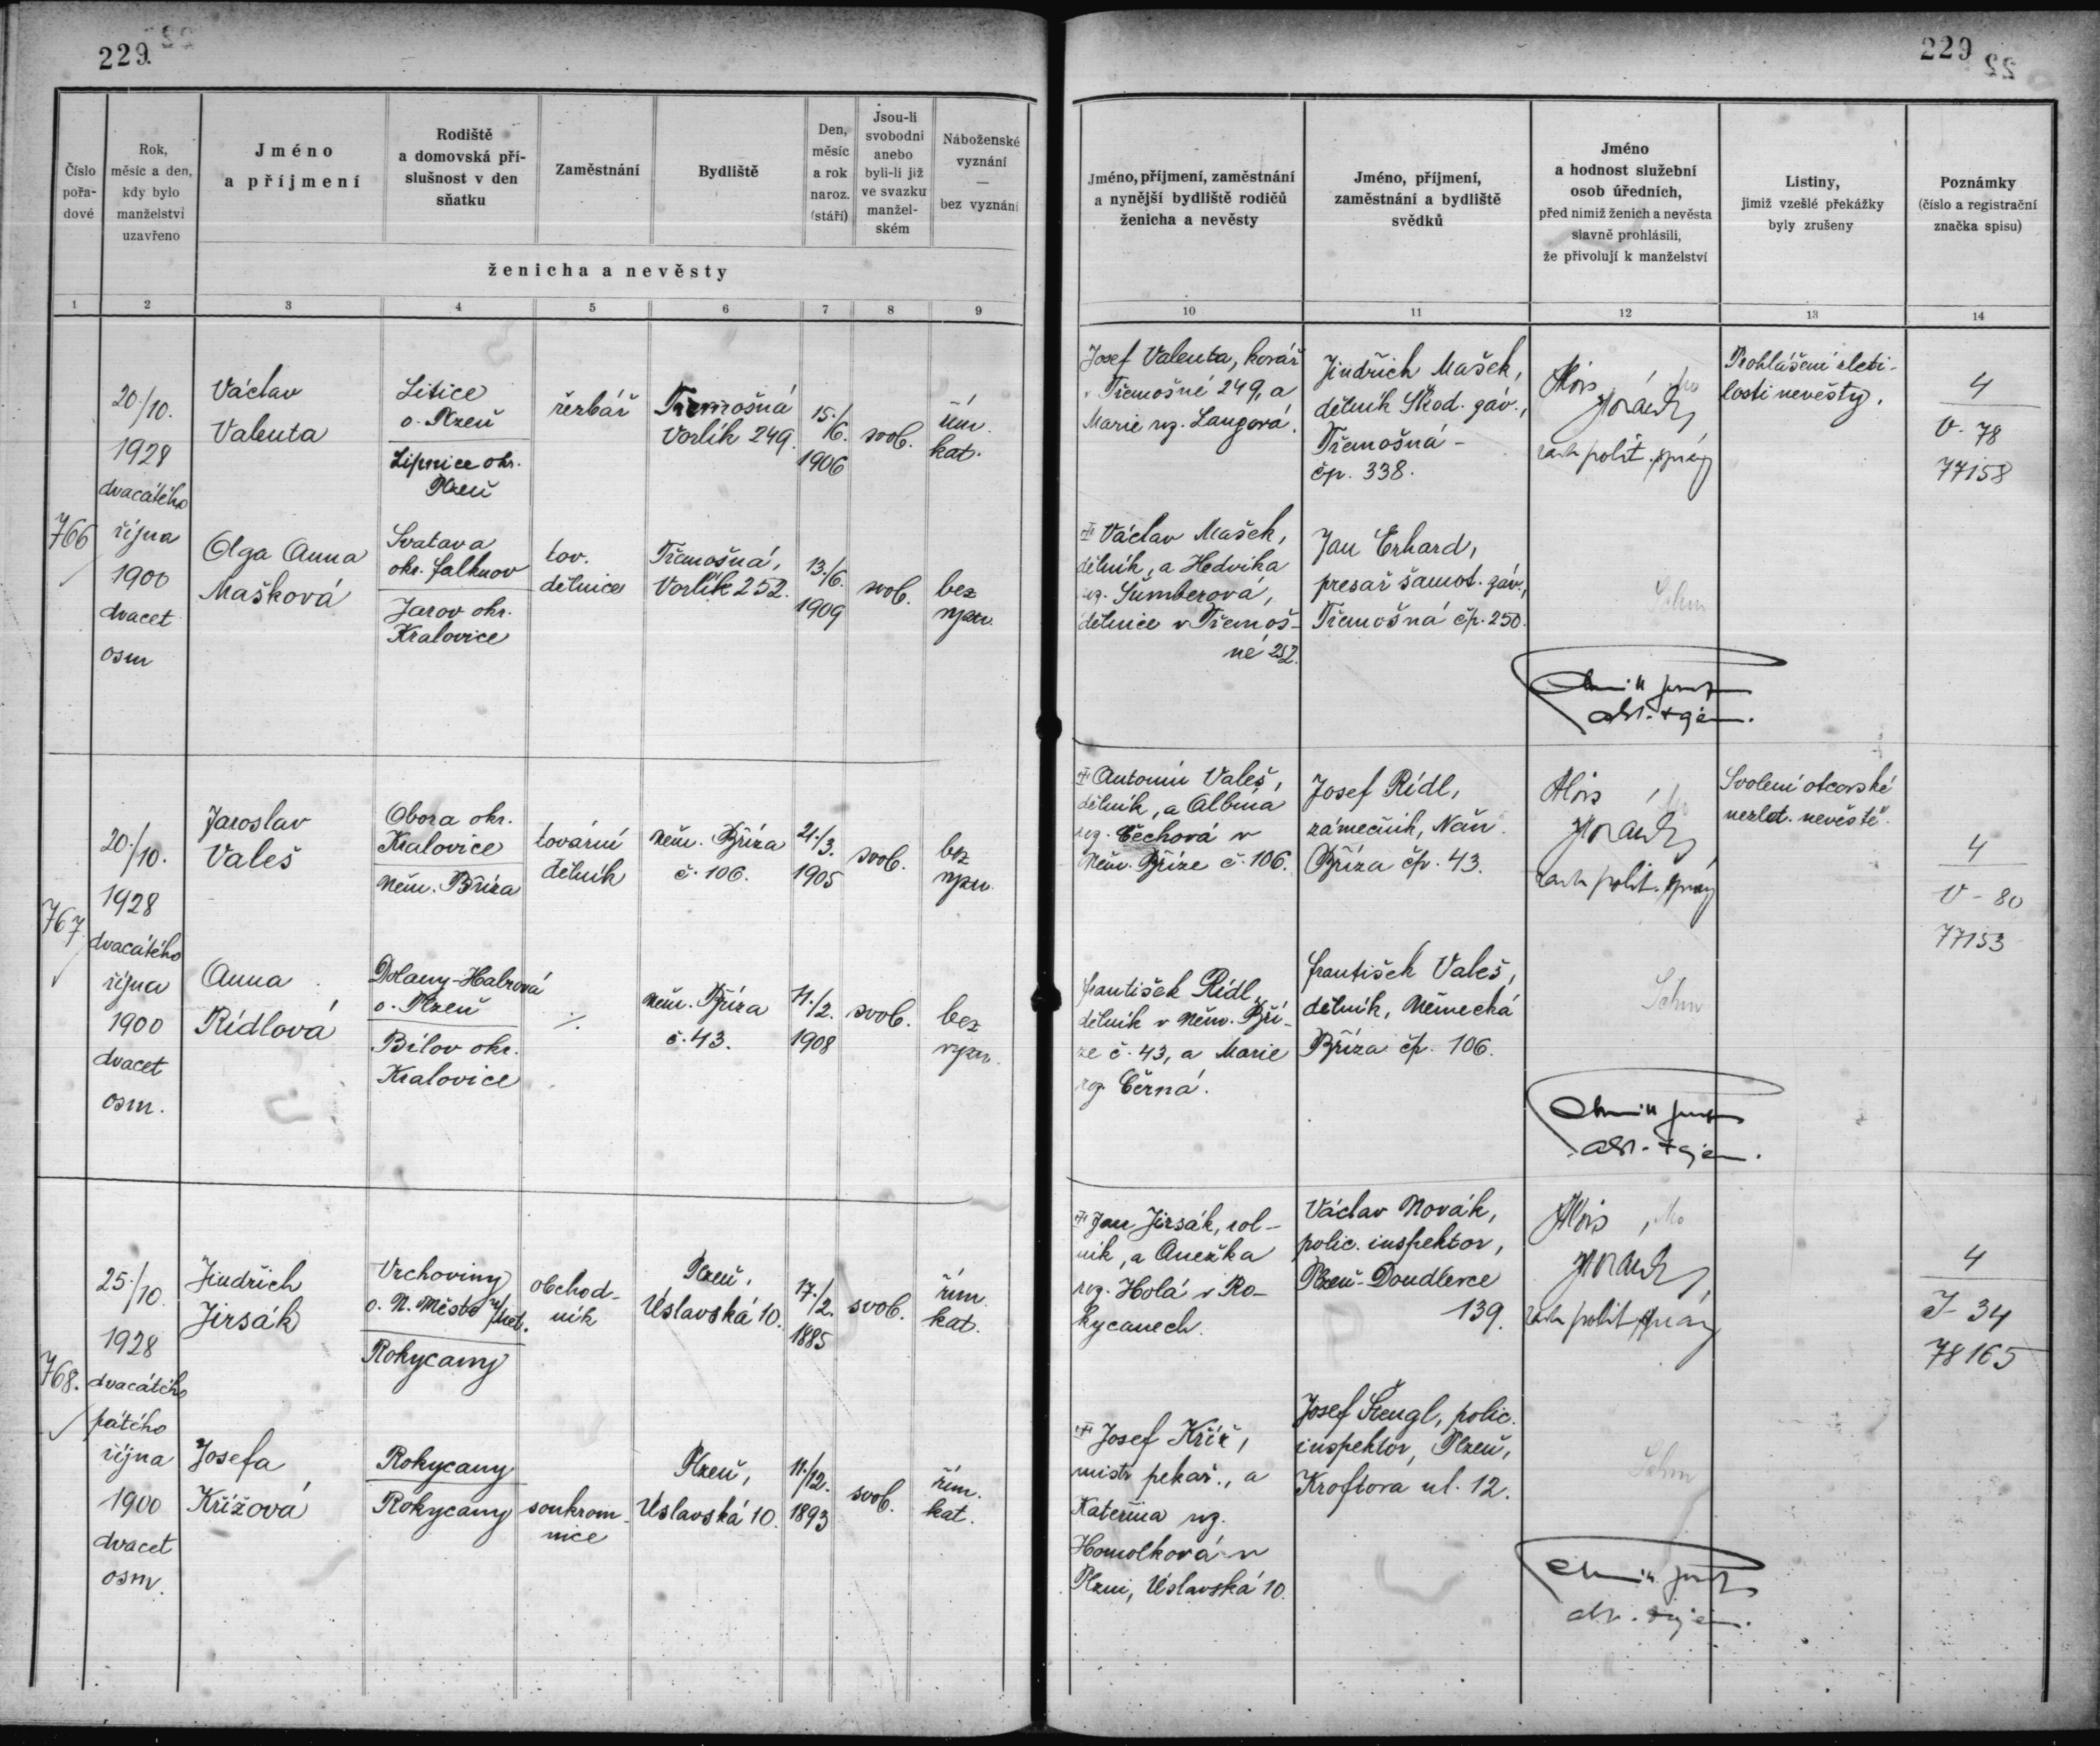 229.
229
Číslo pořadové
Rok, měsíc a den, kdy bylo manželství uzavřeno
Jméno a příjmení
Rodiště a domovská příslušnost v den sňatku
Zaměstnání
Bydliště
Den, měsíc a rok naroz. (stáří)
Jsou-li svobodni anebo byli-li již ve svazku manželském
Náboženské vyznání — bez vyznání
ženicha a nevěsty
Jméno, příjmení, zaměstnání a nynější bydliště rodičů ženicha a nevěsty
Jméno, příjmení, zaměstnání a bydliště svědků
Jméno a hodnost služební osob úředních, před nimiž ženich a nevěsta slavně prohlásili, že přivolují k manželství
Listiny, jimiž vzešlé překážky byly zrušeny
Poznámky (číslo a registrační značka spisu)
1 2 3 4 5 6 7 8 9 10 11 12 13 14
766
20./10.
1928
dvacátého
října
1900
dvacet
osm
Václav
Valenta
Litice
o. Plzeň
Lipnice okr.
Plzeň
řezbář
Třemošná
Vorlík 249.
15./6.
1906
svob.
řím.
kat.
Josef Valenta, kovář
v Třemošné 249, a
Marie roz. Langová.
Jindřich Mašek,
dělník Škod. záv.,
Třemošná -
čp. 338.
Alois
rada polit. správy
Prohlášení zleti-
losti nevěsty.
4
V - 78
77158
Olga Anna
Mašková
Svatava
okr. Falknov
Jarov okr.
Kralovice
tov.
dělnice
Třemošná,
Vorlík 252.
13./6.
1909
svob.
bez
vyzn.
Václav Mašek,
dělník, a Hedvika
roz. Šumberová,
dělnice v Třemoš-
né 252.
Jan Erhard,
presař šamot. záv.,
Třemošná čp. 250.
767
20./10.
1928
dvacátého
října
1900
dvacet
osm.
Jaroslav
Valeš
Obora okr.
Kralovice
Něm. Bříza
tovární
dělník
Něm. Bříza
č. 106.
21./3.
1905
svob.
bez
vyzn.
Antonín Valeš,
dělník, a Albína
roz. Čechová v
Něm. Bříze č. 106.
Josef Rídl,
zámečník, Něm.
Bříza čp. 43.
Alois
rada polit. správy
Svolení otcovské
nezlet. nevěstě.
4
V - 80
77153
Anna
Rídlová
Dolany-Habrová
o. Plzeň
Bílov okr.
Kralovice
./.
Něm. Bříza
č. 43.
11./2.
1908
svob.
bez
vyzn.
František Rídl,
dělník v Něm. Bří-
ze č. 43, a Marie
roz. Černá.
František Valeš,
dělník, Německá
Bříza čp. 106.
768.
25./10.
1928
dvacátého
pátého
října
1900
dvacet
osm.
Jindřich
Jirsák
Vrchoviny
o. N. Město n/Met.
Rokycany
obchod-
ník
Plzeň,
Úslavská 10.
17./2.
1885
svob.
řím.
kat.
Jan Jirsák, rol-
ník, a Anežka
roz. Holá v Ro-
kycanech.
Václav Novák,
polic. inspektor,
Plzeň-Doudlevce
139.
Alois
rada polit. správy
4
J - 34
78165
Josefa
Křížová
Rokycany
Rokycany
soukrom-
nice
Plzeň,
Úslavská 10.
11./12.
1893
svob.
řím.
kat.
Josef Kříž,
mistr pekař., a
Kateřina roz.
Homolková v
Plzni, Úslavská 10.
Josef Štengl, polic.
inspektor, Plzeň,
Kroftova ul. 12.